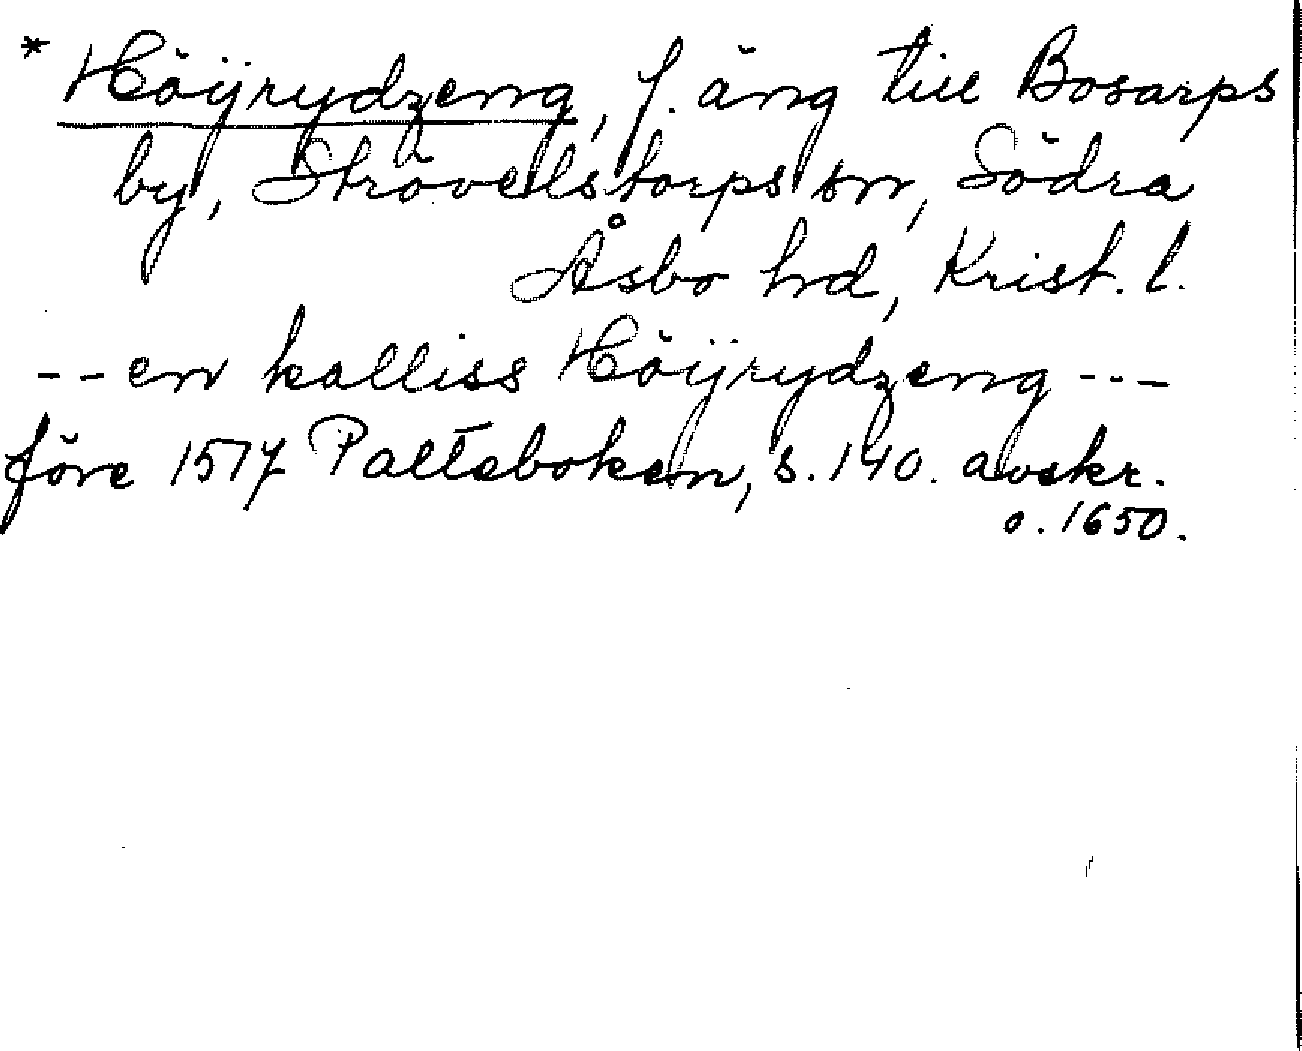 * Höÿrydzeng, f. äng till Bosarps
by, Strövelstorps sn, Södra
Åsbo hd, Krist. l.
-- en kalliss Höÿrydzeng ---
före 1517 Palteboken, s. 140. avskr.
o. 1650.